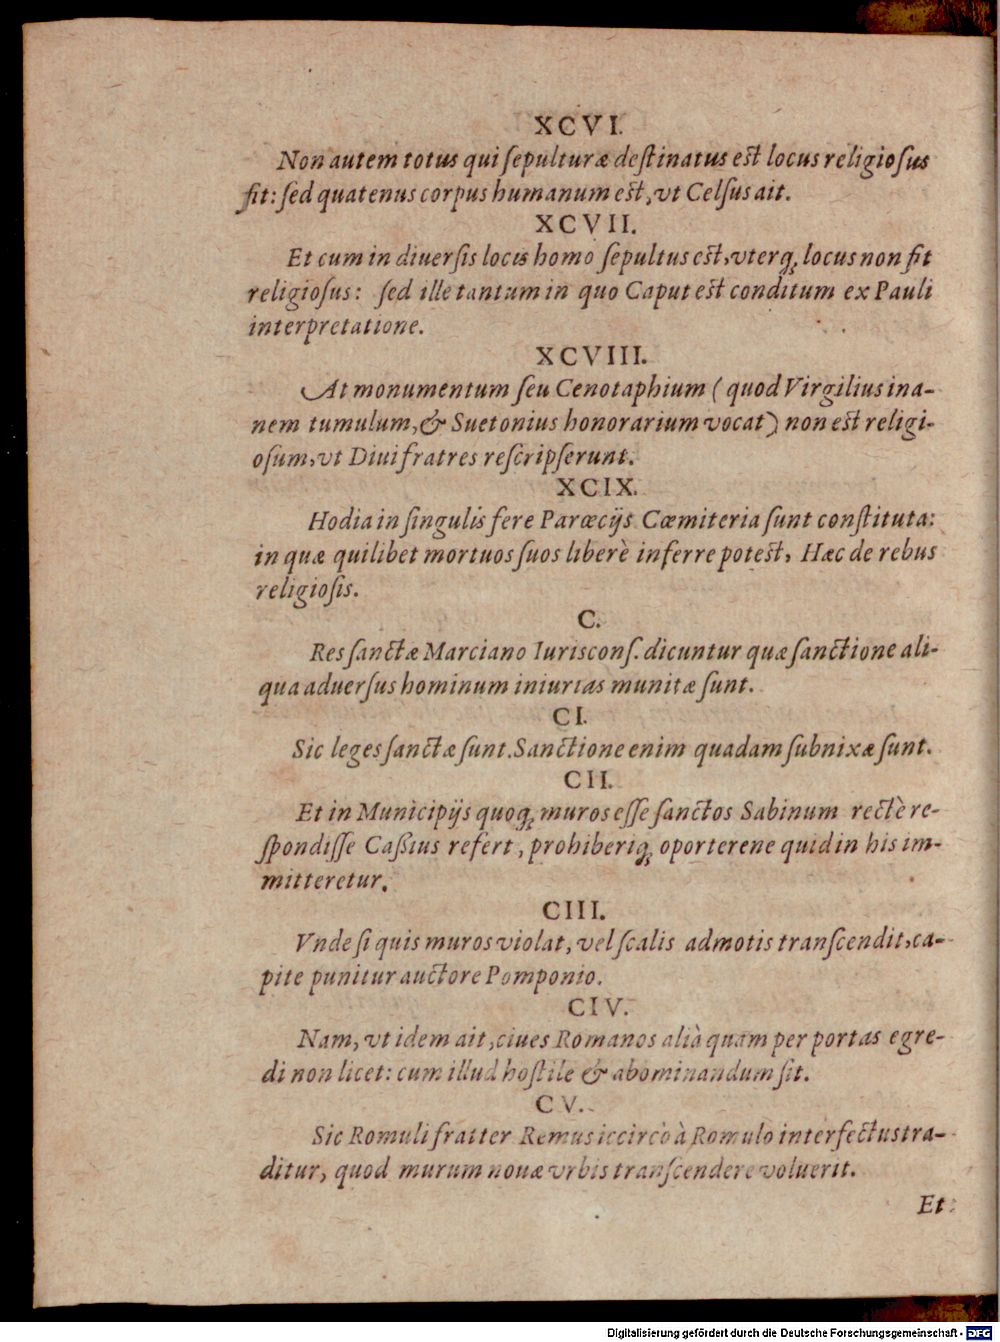 XCVI.
Non autem totus qui ſepulturæ deſtinatus eſt locus religioſus
fit: ſed quatenus corpus humanum eſt, vt Celſus ait.
XCVII.
Et cum in diuerſis locis homo ſepultus eſt, vterq; locus non fit
religioſus: ſed ille tantum in quo Caput eſt conditum ex Pauli
interpretatione.
XCVIII.
At monumentum ſeu Cenotaphium (quod Virgilius ina-
nem tumulum, & Suetonius honorarium vocat) non eſt religi-
oſum, vt Diui fratres reſcripſerunt.
XCIX.
Hodia in ſingulis fere Parœcijs Cœmiteria ſunt conſtituta:
in quæ quilibet mortuos ſuos liberè inferre poteſt, Hæc de rebus
religioſis.
C.
Res ſanctæ Marciano Iurisconſ. dicuntur quæ ſanctione ali-
qua aduerſus hominum iniurias munitæ ſunt.
CI.
Sic leges ſanctæ ſunt. Sanctione enim quadam ſubnixæ ſunt.
CII.
Et in Municipijs quoq; muros eſſe ſanctos Sabinum rectè re-
ſpondiſſe Caßius refert, prohiberiq; oporterene quid in his im-
mitteretur.
CIII.
Vnde ſi quis muros violat, vel ſcalis admotis tranſcendit, ca-
pite punitur auctore Pomponio.
CIV.
Nam, vt idem ait, ciues Romanos alià quam per portas egre-
di non licet: cum illud hoſtile & abominandum ſit.
CV.
Sic Romuli fratter Remus iccircò à Romulo interfectus tra-
ditur, quod murum nouæ vrbis tranſcendere voluerit.
Et
Digitalisierung gefördert durch die Deutsche Forschungsgemeinschaft - DFG